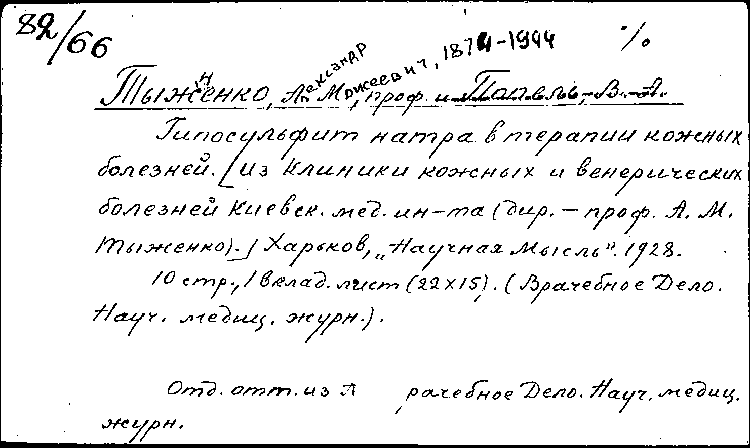 82/66
%
Тыжненко, Александр Моисеевич, 1874-1944, проф. и Попель, В. А.
Гипосульфит натра в терапии кожных
болезней. [из клиники кожных и венерических
болезней Киевск. мед. ин-та (дир. - проф. А. М.
Тыженко).] Харьков, „Научная Мысль". 1928.
10 стр., 1 вклад. лист (22х15). (Врачебное Дело.
Науч. медиц. журн.).
Отд. отт. из рачебное Дело. Науч. медиц.
журн.